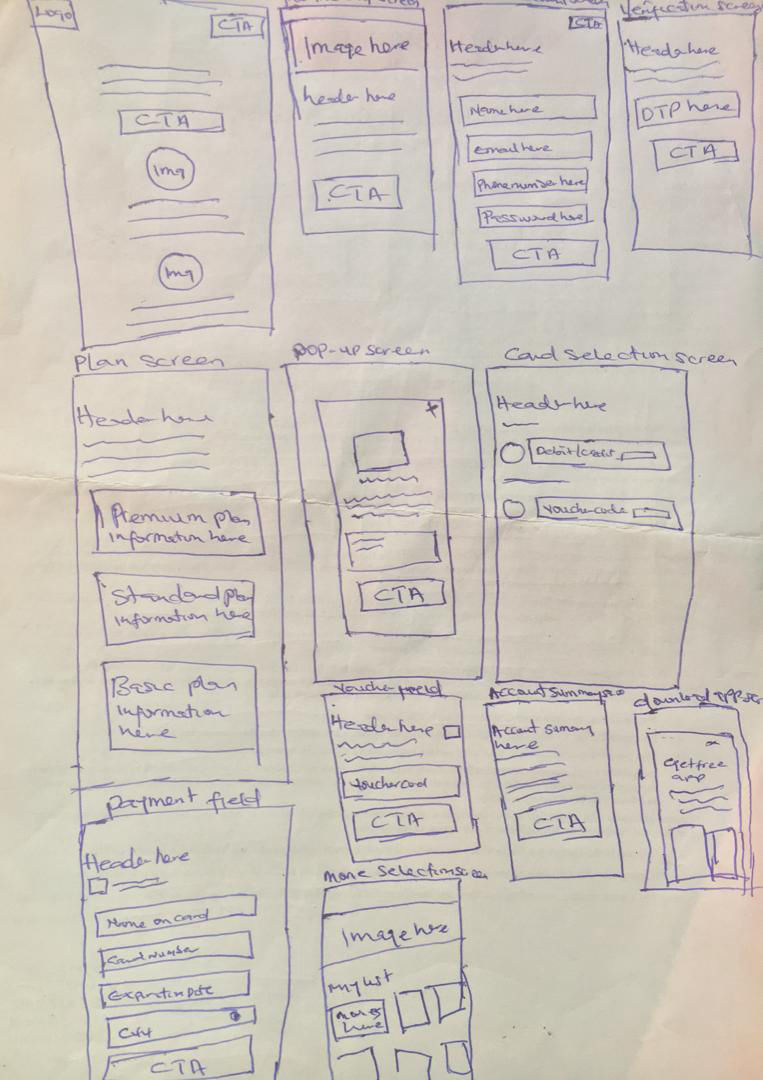 Logo
CTA
CTA
Img
Img
screen
Image here
header here
CTA
CTA
Header here
Name here
Email here
Phone number here
Password here
CTA
Verification screen
Header here
OTP here
CTA
Plan screen
Header here
Premium plan
information here
Standard plan
information here
Basic plan
information
here
POP-up screen
x
CTA
Card selection screen
Header here
Debit/Credit
Voucher code
Voucher field
Header here
Voucher cod
CTA
Account summary
Account Summary
here
CTA
download
x
Get free
app
Payment field
Header here
Name on card
Card Number
Expiration Date
CVV
CTA
Movie selection screen
Image here
My List
Movies
here